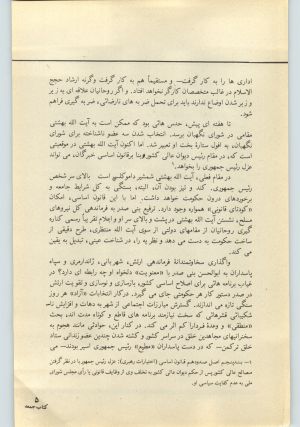 اداری ها را به کار گرفت– و مستقیماً هم به کار گرفت وگرنه ارشاد حجج
الاسلام در غالب متخصصان کارگر نخواهد افتاد. و اگر روحانیان علاقه ای به زیر
و زبر شدن اوضاع ندارند باید برای تحمل ضربه های نارضائی، ضربه گیری فراهم
شود.
تا هفته ای پیش، حدس هائی بود که ممکن است به آیت الله بهشتی
مقامی در شورای نگهبان برسد. انتخاب شدن سه عضو ناشناخته برای شورای
نگهبان، به افول ستارهٔ بخت او تعبیر شد. اما اکنون آیت الله بهشتی در موقعیتی
است که، در مقام رئیس دیوان عالی کشور وبنا برقانون اساسی خبرگان، می تواند
عزل رئیس جمهوری را بخواهد.¹
در مقام فعلی، آیت الله بهشتی شمشیر داموکلسی است بالای سر شخص
رئیس جمهوری. کند و تیز بودن آن، البته، بستگی به کل شرایط جامعه و
برخوردهای درون حکومت خواهد داشت. اما با این قانون اساسی، امکان
«کودتای قانونی» همواره وجود دارد. ترفیع بنی صدر به فرماندهی کل نیروهای
مسلح، نشستن آیت الله بهشتی در پشت و بالای سر او و اعلام تقریباً رسمی کناره
گیری روحانیان از مقامهای دولتی از سوی آیت الله منتظری، طرح دقیقی از
ساخت حکومت به دست می دهد و نظر به را، در شناخت عینی، تبدیل به یقین
می کند.
واگذاری سخاوتمندانهٔ فرماندهی ارتش، شهربانی، ژاندارمری و سپاه
پاسداران به ابوالحسن بنی صدر با «معنویت» دلخواه او چه رابطه ای دارد؟ در
غیاب برنامه هائی برای اصلاح اساسی کشور، بازسازی و نوسازی و تقویت ارتش
در صدر دستور کار هر حکومتی جای می گیرد. در کنار انتخابات «آزاد» هر روز
سنگی تازه می اندازند. گسترش مبارزات اجتماعی از شهر به دهات و افزایش
شکیبائی قشرهائی که سخت نیازمند برنامه های قاطع و کوتاه مدت اند، بحث
«منطقی» و وعدهٔ فردا را کم اثر می کند. در کنار این، حوادثی مانند هجوم به
سخنرانیهای مجاهدین خلق در سراسر کشور و کشته شدن چندین عضو زندانی ستاد
خلق ترکمن– که در دست پاسداران «مطیع» رئیس جمهوری اسیر بودند– می
۱– بند پنجم اصل صد و دهم قانون اساسی (اختیارات رهبری): عزل رئیس جمهور با در نظر گرفتن
مصالح عالی کشور پس از حکم دیوان عالی کشور به تخلف وی از وظایف قانونی یا رأی مجلس شورای
ملی به عدم کفایت سیاسی او.
۵
کتاب جمعه